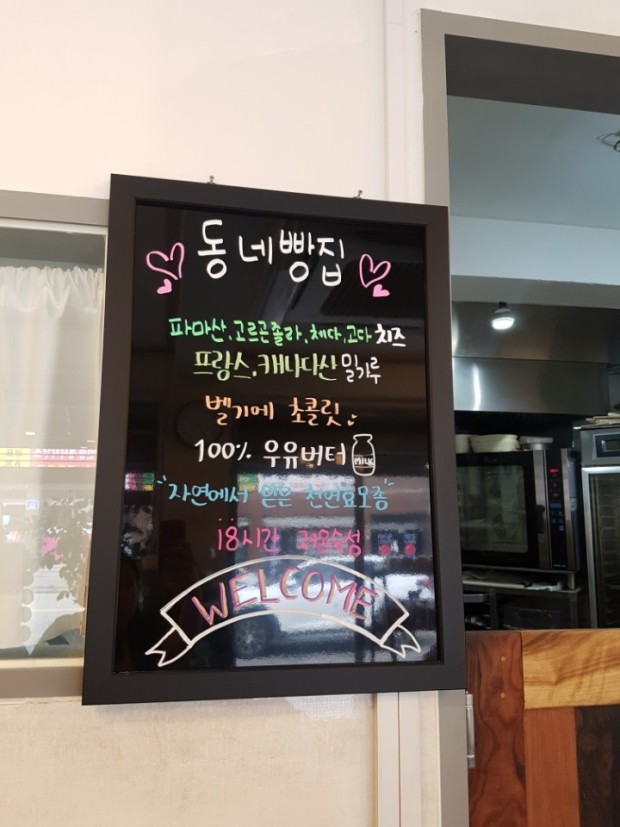 동네빵집
파마산, 고르곤졸라, 체다, 고다 치즈
프랑스, 캐나다산 밀가루
벨기에 초콜릿
100% 우유버터
MILK
"자연에서 얻은 천연효모종"
18시간 저온숙성
WELCOME